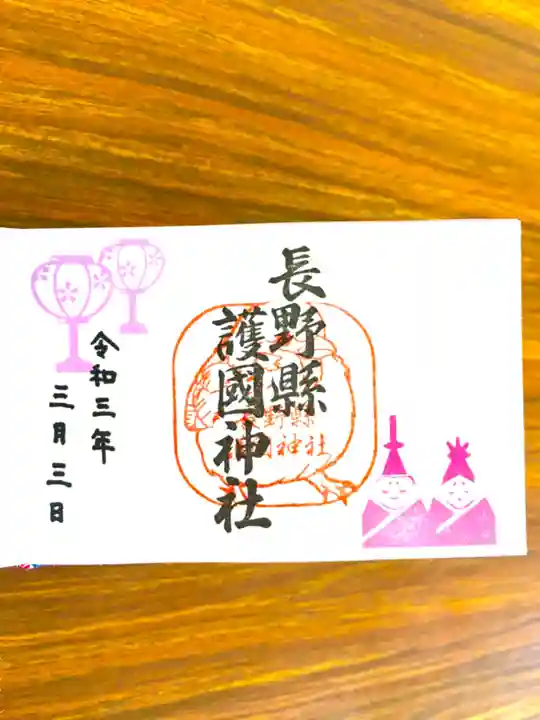 長野縣
護國神社
野縣
神社
令和三年
三月三日